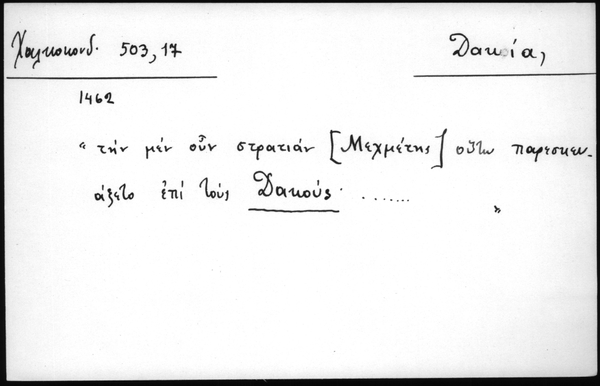 Χαλκοκονδ. 503,17
Δακία,
1462
"τὴν μέν οὖν στρατιάν [Μεχμέτης] οὕτω παρεσκευ-
άζετο ἐπί τούς Δακούς· ....... "